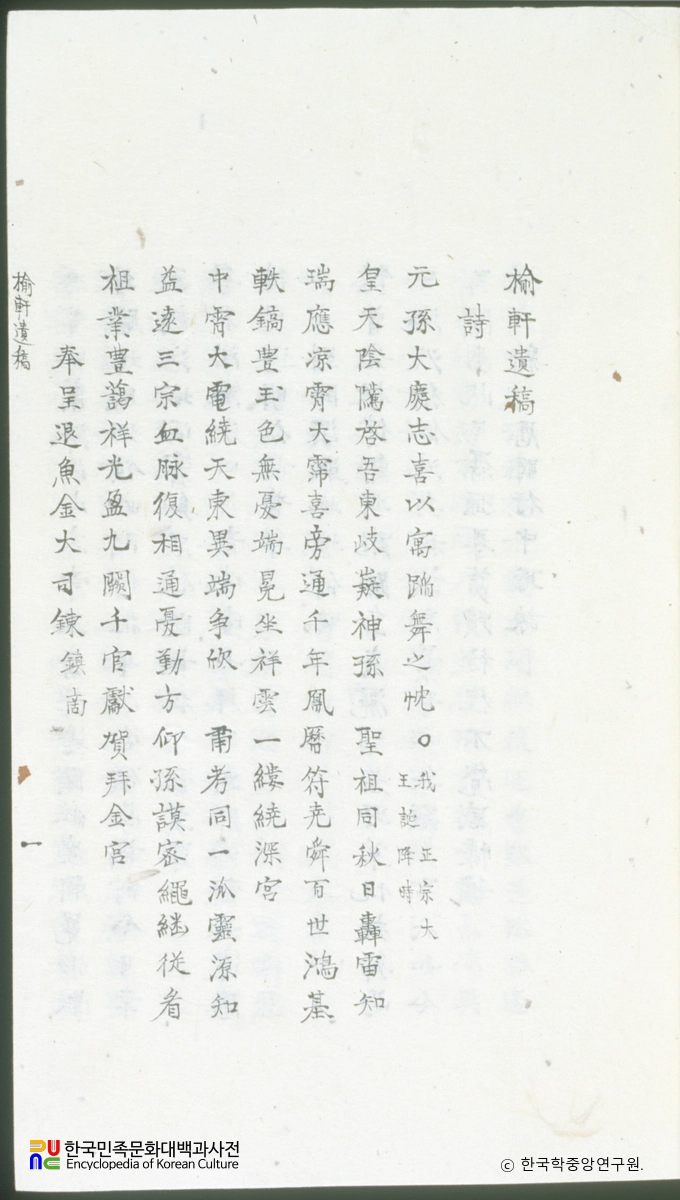 楡軒遺稿
詩
元孫大慶志喜以寓蹈舞之忱○我 正宗大王誕降時
皇天陰隲啓吾東岐嶷神孫聖祖同秋日轟雷知
瑞應凉霄大霈喜旁通千年鳳曆符堯舜百世鴻基
軼鎬豊玉色無憂端冕坐祥雲一縷繞深宮
中霄大電繞天東異端争欣 甭考同一派靈源知
益遠三宗血脉復相通憂勤方仰孫謨密繩繼從看
祖業豊藹祥光盈九闕千官獻賀拜金宮
奉呈退魚金大司鍊鎭商
楡軒遺稿
一
한국민족문화대백과사전
Encyclopedia of Korean Culture
ⓒ 한국학중앙연구원.